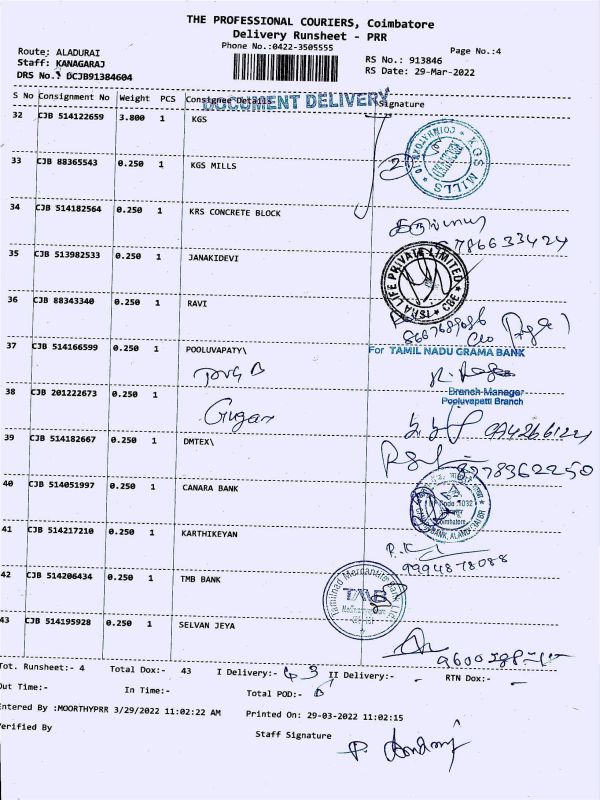 THE PROFESSIONAL COURIERS, Coimbatore
Delivery Runsheet - PRR
Phone No.:0422-3505555
Page No.:4
Route: ALADURAI
Staff: KANAGARAJ
DRS No.: DCJB91384604
RS No.: 913846
RS Date: 29-Mar-2022
S No Consignment No Weight PCS Consignee Details Signature
DOCUMENT DELIVERY
32 CJB 514122659 3.800 1 KGS
KGS MILLS
33 CJB 88365543 0.250 1 KGS MILLS
34 CJB 514182564 0.250 1 KRS CONCRETE BLOCK
35 CJB 513982533 0.250 1 JANAKIDEVI
LIFE PRIVATE LIMITED CBE
36 CJB 88343340 0.250 1 RAVI
37 CJB 514166599 0.250 1 POOLUVAPATY\
For TAMIL NADU GRAMA BANK
Branch Manager
Pooluvapatti Branch
38 CJB 201222673 0.250 1
39 CJB 514182667 0.250 1 DMTEX\
40 CJB 514051997 0.250 1 CANARA BANK
41 CJB 514217210 0.250 1 KARTHIKEYAN
9994878088
42 CJB 514206434 0.250 1 TMB BANK
Tamilnad Mercantile Bank Ltd.
TMB
43 CJB 514195928 0.250 1 SELVAN JEYA
Tot. Runsheet:- 4 Total Dox:- 43 I Delivery:- II Delivery:- - RTN Dox:- -
Out Time:- In Time:- Total POD:-
Entered By :MOORTHYPRR 3/29/2022 11:02:22 AM Printed On: 29-03-2022 11:02:15
Verified By Staff Signature